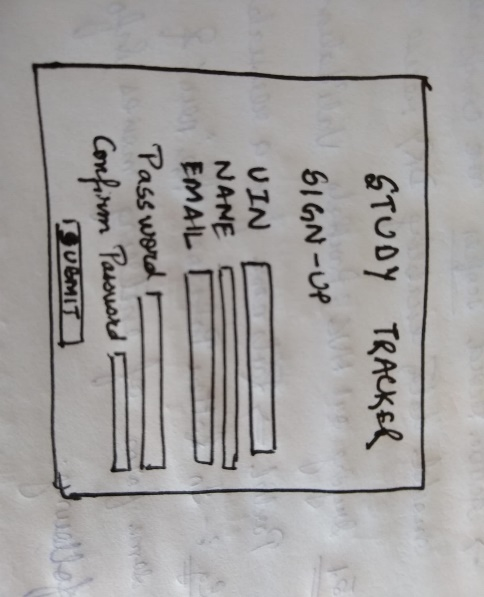 STUDY TRACKER
SIGN-UP
UIN
NAME
EMAIL
Password
Confirm Password
SUBMIT